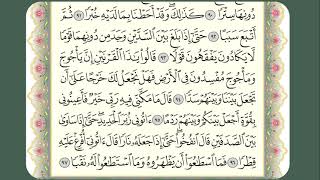 دُونِهَا سِتْرًا ﴿٩٠﴾ كَذَٰلِكَۖ وَقَدْ أَحَطْنَا بِمَا لَدَيْهِ خُبْرًا ﴿٩١﴾ ثُمَّ
أَتْبَعَ سَبَبًا ﴿٩٢﴾ حَتَّىٰٓ إِذَا بَلَغَ بَيْنَ ٱلسَّدَّيْنِ وَجَدَ مِن دُونِهِمَا قَوْمًا
لَّا يَكَادُونَ يَفْقَهُونَ قَوْلًا ﴿٩٣﴾ قَالُوا۟ يَٰذَا ٱلْقَرْنَيْنِ إِنَّ يَأْجُوجَ
وَمَأْجُوجَ مُفْسِدُونَ فِى ٱلْأَرْضِ فَهَلْ نَجْعَلُ لَكَ خَرْجًا عَلَىٰٓ أَن
تَجْعَلَ بَيْنَنَا وَبَيْنَهُمْ سَدًّا ﴿٩٤﴾ قَالَ مَا مَكَّنِّى فِيهِ رَبِّى خَيْرٌ فَأَعِينُونِى
بِقُوَّةٍ أَجْعَلْ بَيْنَكُمْ وَبَيْنَهُمْ رَدْمًا ﴿٩٥﴾ ءَاتُونِى زُبَرَ ٱلْحَدِيدِۖ حَتَّىٰٓ إِذَا سَاوَىٰ
بَيْنَ ٱلصَّدَفَيْنِ قَالَ ٱنفُخُوا۟ۖ حَتَّىٰٓ إِذَا جَعَلَهُۥ نَارًا قَالَ ءَاتُونِىٓ أُفْرِغْ عَلَيْهِ
قِطْرًا ﴿٩٦﴾ فَمَا ٱسْطَٰعُوٓا۟ أَن يَظْهَرُوهُ وَمَا ٱسْتَطَٰعُوا۟ لَهُۥ نَقْبًا ﴿٩٧﴾